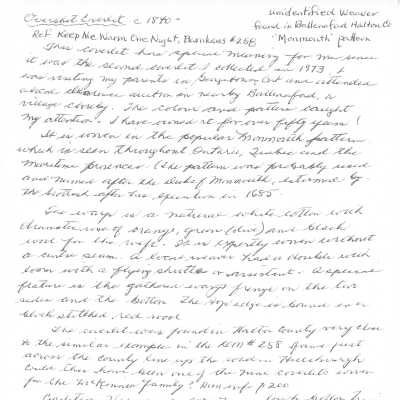 Overshot Coverlet c 1840
unidentified Weaver
found in Ballinafad Halton Co
Ref Keep Me Warm One Night, Burnhams #258 "Monmouth" pattern
This coverlet has special meaning for me since
it was the second coverlet I collected in 1973. I
was visiting my parents in Georgetown Ont and attended
auction in nearby Ballinafad, a
village closeby. The colour and pattern caught
my attention. I have owned it for over fifty years!
It is woven in the popular Monmouth pattern
which is seen throughout Ontario, Quebec and the
Maritime provinces. (The pattern was probably used
and named after the Duke of Monmouth, by
the Scottish after his execution in 1685.
The warp is a natural white cotton with
of orange, green (olive) and black
wool for the weft. It is expertly woven without
a centre seam. A local weaver had a double width
loom with a flying shuttle or assistant. A special
feature is the gathered warp fringe on the two
sides and the bottom. The top edge is bound in a
black stitched red wool
The coverlet was found in Halton County very close
to the similar example in the ROM #258 found just
across the county line up the road in Hillsburgh
Quite there have been one of the same coverlets woven
for the "McKennon family" Burnham p 200